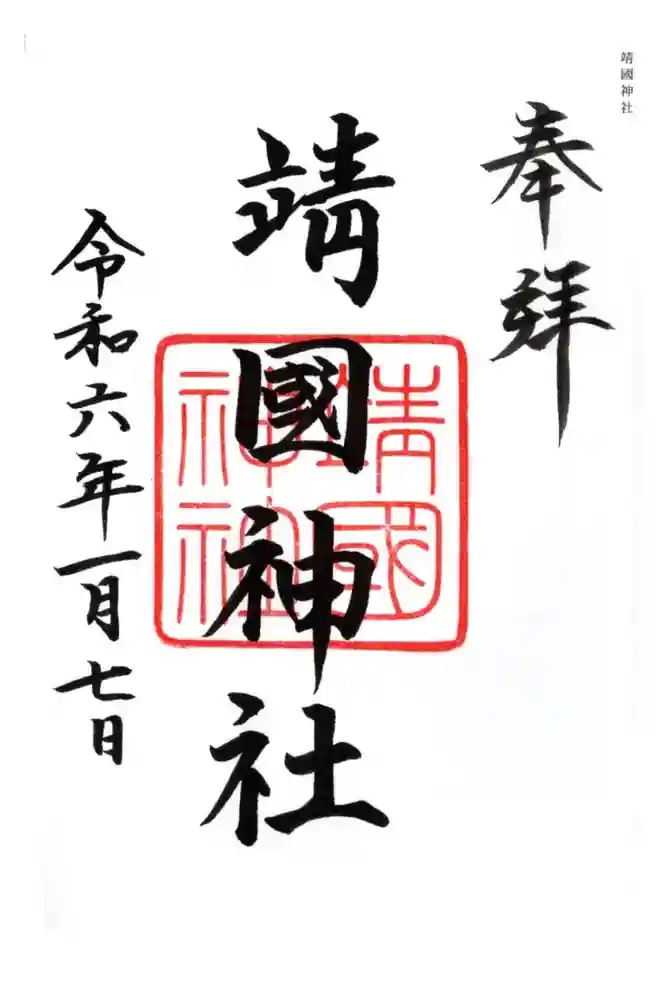 靖國神社
奉拝
靖國神社
靖國
神社
令和六年一月七日